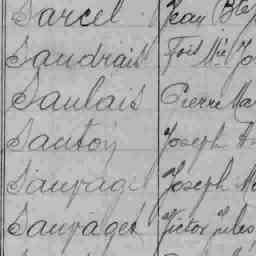 Sarcel Jean Bte
Saudrais Fois Mie Jo
Saulais Pierre Ma
Sautoy Joseph
Sauvage Joseph M
Sauvaget Victor Jules